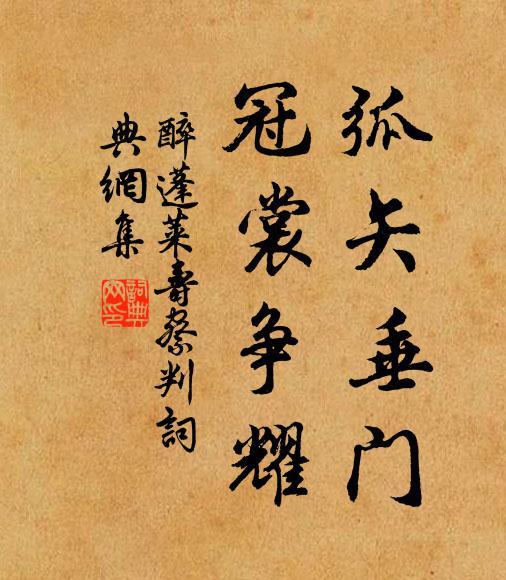 弧矢垂门
冠裳争耀
醉蓬莱寿蔡判词
典網集
詞典網印